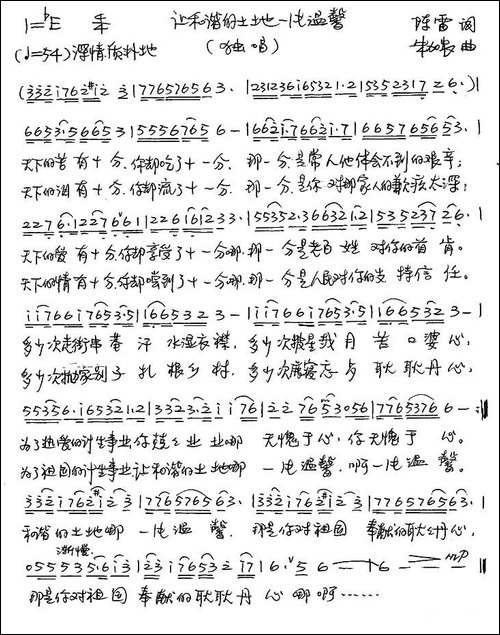 1=♭E 让和谐的土地一片温馨 陈雷 词
(♩=54) 深情 质朴地 (独唱) 曲
(3321762#12 3|77657653. |2312361653 21.2|15352317 26.)|
6653.56653|55567656-|1662 1.7662 1.7|66576565 3.|
天下的苦有十分,你却吃了十一分, 那一分是常人他体会不到的艰辛;
天下的泪有十分,你却流了十一分, 那一分是你对那家人的歉疚太深;
2276.12276 61|22616 1233.|55352.366321.2|1535237 26.|
天下的爱有十分,你却享受了十一分哪,那一分是老百姓对你的首肯。
天下的情有十分,你却尝到了十一分哪,那一分是人民对你的支持信任。
1176617653.5|1665323-|1176617653.5|1665323-|
多少次走街串巷 汗水湿衣襟, 多少次披星戴月 苦口婆心,
多少次抛家别子 扎根乡村, 多少次废寝忘 耿耿丹心,
55356.1653 21.2|3323.211 76|2.2 76530 56|7765376 6-:|
为了热爱的计生事业你兢兢业业哪 无愧于心,你无愧于心。
为了祖国的计生事业让和谐的土地哪 一片温馨,啊一片温馨。
332176212 3|776576563.|332176212 3|776576563.|
和谐的土地哪 一片温馨, 那是你对祖国 奉献的耿耿丹心,
渐慢
055535.613|2317653 2 17|6.ᵛ5 6-→|6 - - -||
那是你对祖国 奉献的耿耿丹心哪啊……